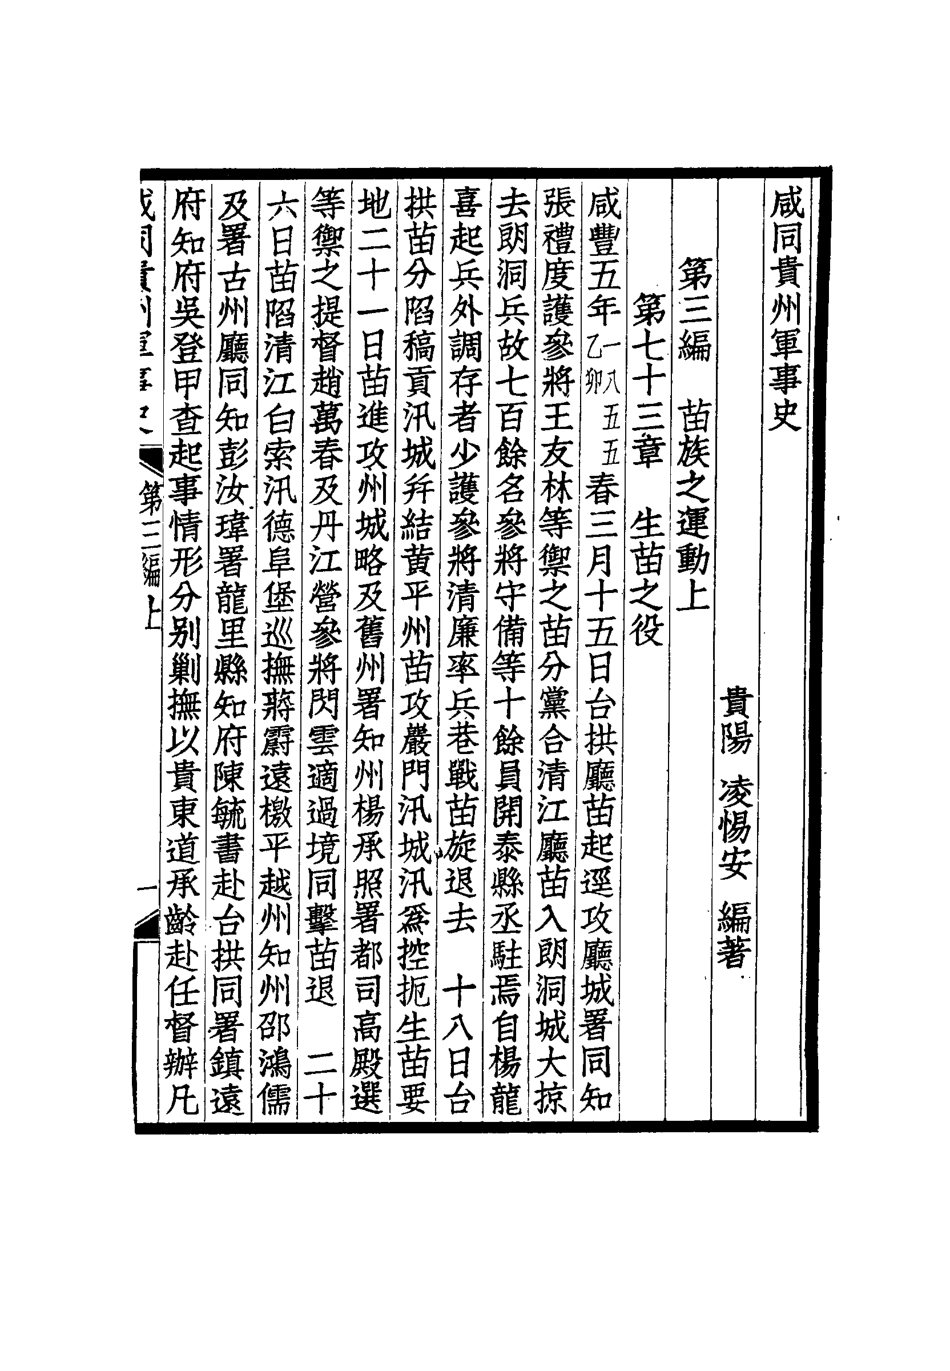 咸同貴州軍事史
貴陽 凌惕安 編著
第三編 苗族之運動上
第七十三章 生苗之役
咸豐五年乙卯一八五五春三月十五日台拱廳苗起逕攻廳城署同知
張禮度護參將王友林等禦之苗分黨合清江廳苗入朗洞城大掠
去朗洞兵故七百餘名參將守備等十餘員開泰縣丞駐焉自楊龍
喜起兵外調存者少護參將清廉率兵巷戰苗旋退去 十八日台
拱苗分陷稿貢汛城幷結黃平州苗攻巖門汛城汛為控扼生苗要
地二十一日苗進攻州城略及舊州署知州楊承照署都司高殿選
等禦之提督趙萬春及丹江營參將閃雲適過境同擊苗退 二十
六日苗陷清江白索汛德阜堡巡撫蔣霨遠檄平越州知州邵鴻儒
及署古州廳同知彭汝瑋署龍里縣知府陳毓書赴台拱同署鎮遠
府知府吳登甲查起事情形分別剿撫以貴東道承齡赴任督辦凡
咸同貴州軍事史 第三編上 一